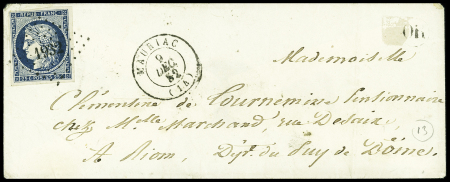 REPUB. FRANC.
MAURIAC
9
DEC.
52
(14)
OR
Mademoiselle
Clémentine de Tournemire Pensionnaire
chez Melle Marchand, rue Desaix,
A Riom, Dépt. du Puy de Dôme.
13